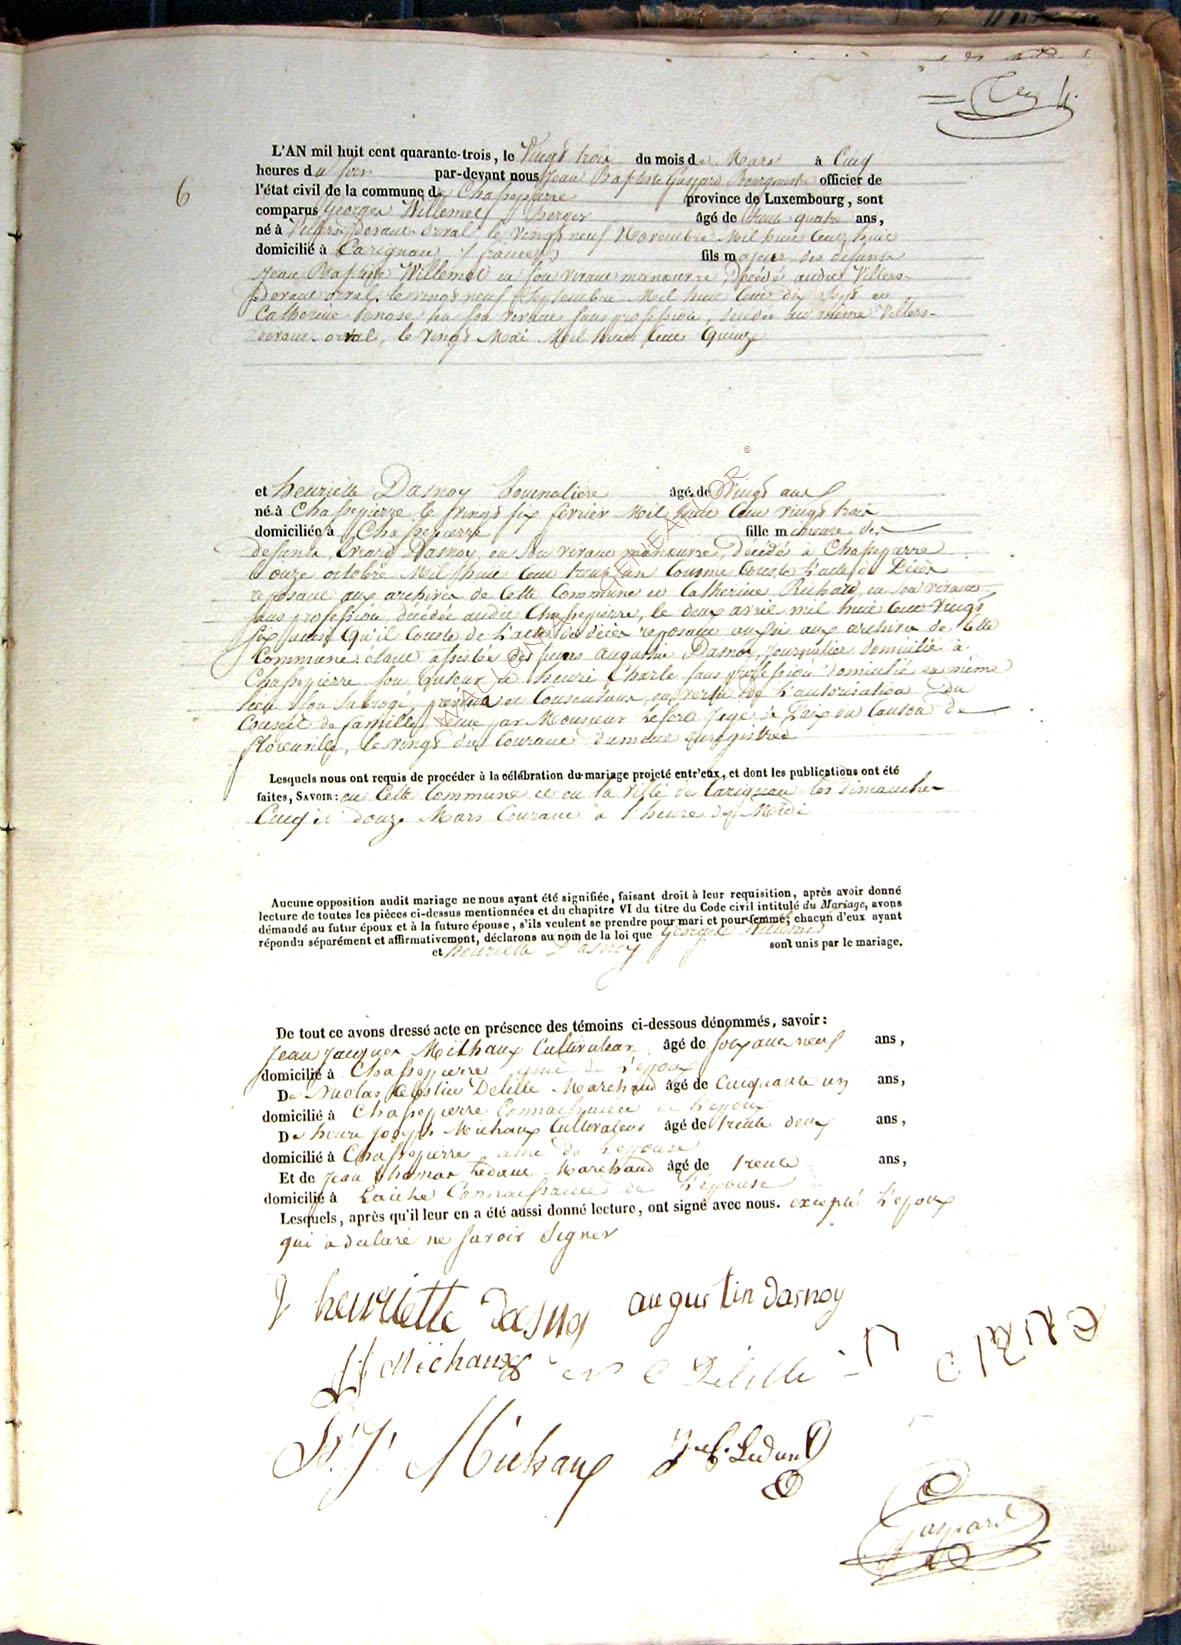 6
L'AN mil huit cent quarante-trois, le Vingt trois du mois de Mars à Cinq
heures du soir par-devant nous Jean Baptiste Gaspard Bourgmestre officier de
l'état civil de la commune de Chassepierre province de Luxembourg, sont
comparus Georges Willemet Berger âgé de trente quatre ans,
né à Villers devant orval le vingt neuf Novembre Mil huit Cent huit
domicilié à Carignan (france) fils majeur des défunts
Jean Baptiste Willemet en son vivant manœuvre, Décédé audit Villers-
devant orval, le vingt neuf Septembre Mil huit Cent dix Sept et
Catherine en son vivant sans profession, décédée au même Villers-
devant-orval, le vingt Mai Mil huit Cent Quinze
et henriette Dasnoy Journalière âgé de Vingt ans
né à Chassepierre le vingt six février Mil huit Cent vingt trois
domiciliée à Chassepierre fille mineure des
défunts Dasnoy, en son vivant manœuvre, décédé à Chassepierre
le onze octobre Mil huit Cent trente un Comme Conste L'acte de Décès
reposant aux archives de Cette Commune et Catherine Richard, en son vivant
sans profession, décédée audit Chassepierre, le deux avril mil huit Cent vingt
six aussi Qu'il Conste de L'acte de décès reposant aussi aux archives de Cette
Commune étant assistée des sieurs augustin Dasnoy, Journalier domicilié à
Chassepierre son tuteur et henri Charle sans profession domicilié au même
lieu son Subrogé, présens et Consentans, en vertu de L'autorisation du
Conseil de famille, tenue par Monsieur Juge de Paix du Canton de
florenville, le vingt du Courant dument enregistrée
Lesquels nous ont requis de procéder à la célébration du mariage projeté entr'eux, et dont les publications ont été
faites, SAVOIR: en Cette Commune et en la Ville de Carignan les dimanches
Cinq et douze Mars Courant à l'heure de Midi
Aucune opposition audit mariage ne nous ayant été signifiée, faisant droit à leur requisition, après avoir donné
lecture de toutes les pièces ci-dessus mentionnées et du chapitre VI du titre du Code civil intitulé du Mariage, avons
démandé au futur époux et à la future épouse, s'ils veulent se prendre pour mari et pour femme; chacun d'eux ayant
répondu séparément et affirmativement, déclarons au nom de la loi que Georges Willemet
et henriette Dasnoy sont unis par le mariage.
De tout ce avons dressé acte en présence des témoins ci-dessous dénommés, savoir:
Jean Jacques Michaux Cultivateur âgé de soixante neuf ans,
domicilié à Chassepierre ami de L'époux
De Nicolas Celestin Delille Marchand âgé de Cinquante un ans,
domicilié à Chassepierre Connaissance de L'époux
De henri Joseph Michaux Cultivateur âgé de trente deux ans,
domicilié à Chassepierre ami de L'épouse
Et de Jean thomas Ledant Marchand âgé de trente ans,
domicilié à Laiche Connaissance de L'épouse
Lesquels, après qu'il leur en a été aussi donné lecture, ont signé avec nous. excepté L'époux
qui a déclaré ne savoir signer
henriette dasnoy augustin dasnoy
JJ Michaux N C Delille
h. J. Michaux J. t. Ledant
Gaspard
© WALLONIE GENEAFLOR